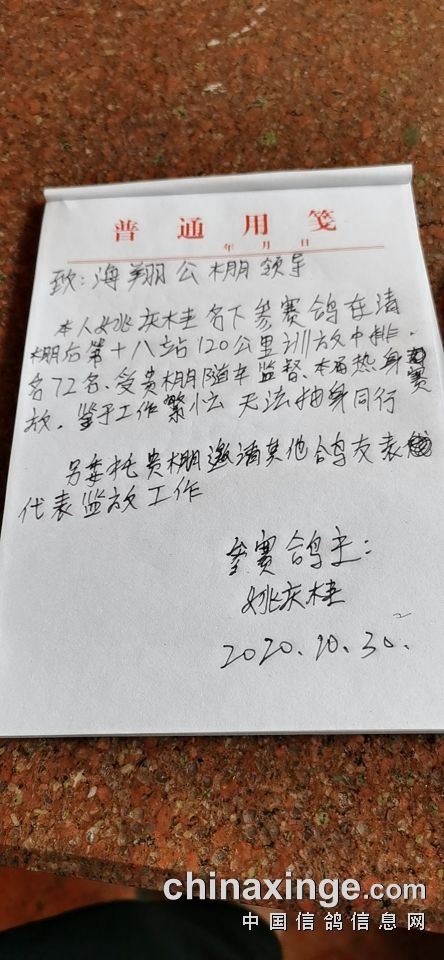 普通用笺
年 月 日
致:海翔公棚领导
本人姚庆桂名下参赛鸽在清
棚后第十八站120公里训放中排
名72名.受贵棚随车监督.本届热身赛
放.鉴于工作繁忙 无法抽身同行
另委托贵棚邀请其他鸽友表
代表监放工作
参赛鸽主:
姚庆桂
2020.10.30.
chinaxinge.com
中国信鸽信息网